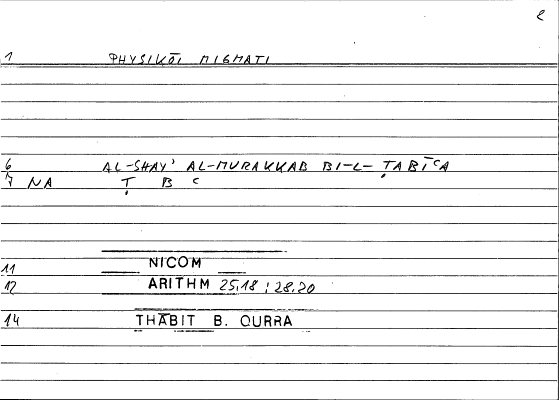 e
1 PHYSIKŌI MIGMATI
6 AL-SHAY' AL-MURAKKAB BI-L-ṬABĪᶜA
7 NA Ṭ B ᶜ
11 NICOM
12 ARITHM 25,18 ; 28.20
14 THĀBIT B. QURRA